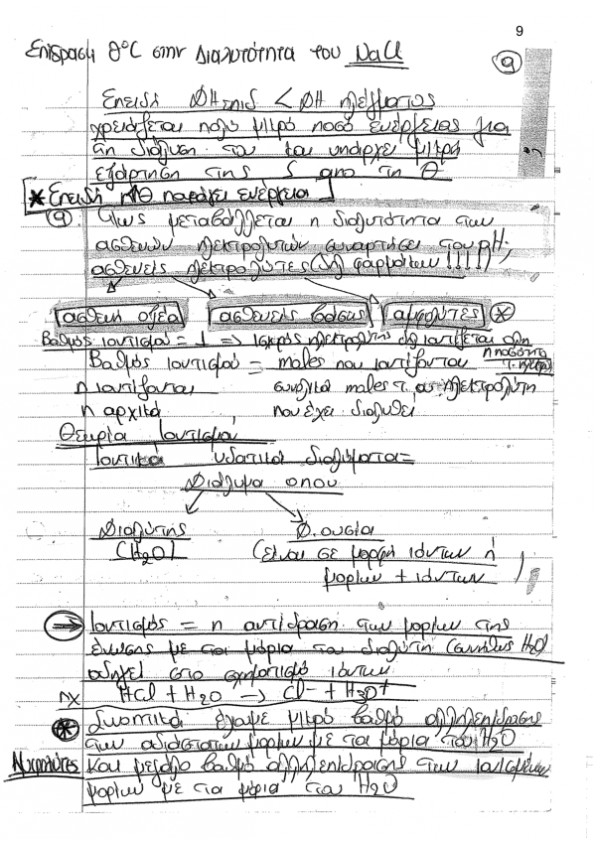 9
Επίδραση θ°C στην Διαλυτότητα του NaCl
9
Επειδή ΔΗ επιδ < ΔΗ πλέγματος
χρειάζεται πολύ μικρό ποσό ενέργειας για
τη διάλυση του και υπάρχει μικρή
εξάρτηση της S απο τη Θ
* Επειδή παράγει ενέργεια
9. Πως μεταβάλλεται η διαλυτότητα των
ασθενών ηλεκτρολυτών συναρτήσει του pH;
ασθενείς ηλεκτρολύτες φαρμάκων !!!!)
ασθενή οξέα ασθενείς βάσεις αμφολύτες *
Βαθμός ιοντισμού = 1 => ισχυρός ηλεκτρολύτης ιοντίζεται όλη
η ποσότητα
Βαθμός ιοντισμού = moles που ιοντίζονται
n ιοντίζονται συνολικά moles ηλεκτρολύτη
n αρχικά που έχει διαλυθεί
Θεωρία Ιοντισμού
Ιοντικά υδατικά διαλύματα =
Διάλυμα οπου
Διαλύτης Δ. ουσία
(H2O) (είναι σε μορφή ιόντων ή
μορίων + ιόντων)
Ιοντισμός = η αντίδραση των μορίων της
ένωσης με τα μόρια του διαλύτη (συνήθως H2O)
οδηγεί στο σχηματισμό ιόντων
πχ HCl + H2O -> Cl- + H3O+
* μικρό βαθμό αλληλεπίδρασης
των αδιάστατων μορίων με τα μόρια του H2O
και μεγάλο βαθμό αλληλεπίδρασης των ιονισμένων
μορίων με τα μόρια του H2O